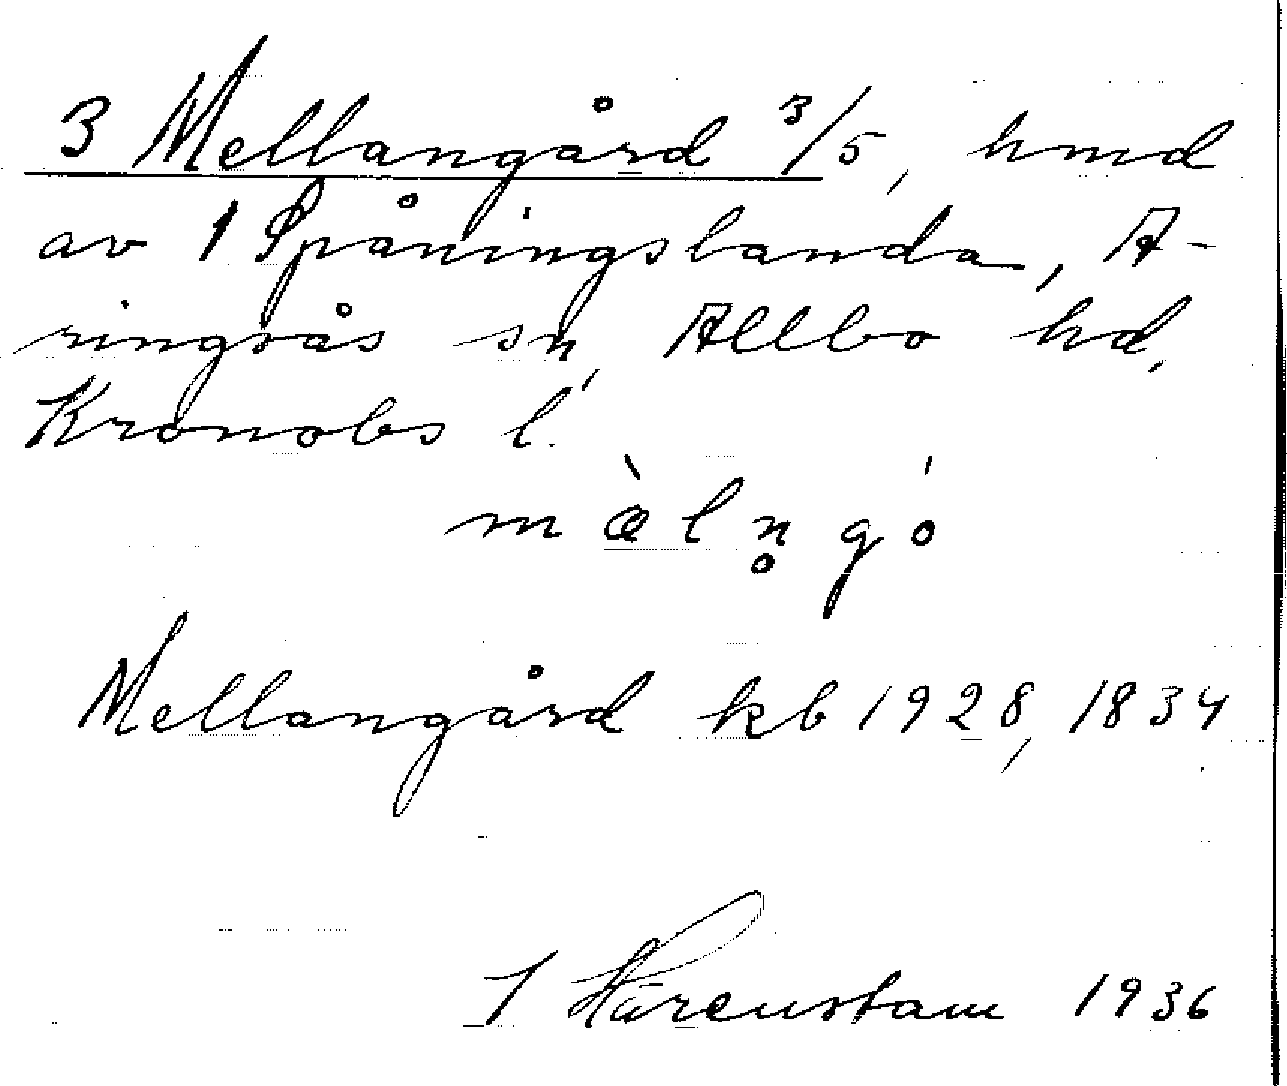 3 Mellangård 3/5, hmd
av 1 Spåningslanda, A-
ringsås sn, Allbo hd,
Kronobs l.
m æ̀ l n̥ g ó
Mellangård kb 1928, 1834
I Härenstam 1936